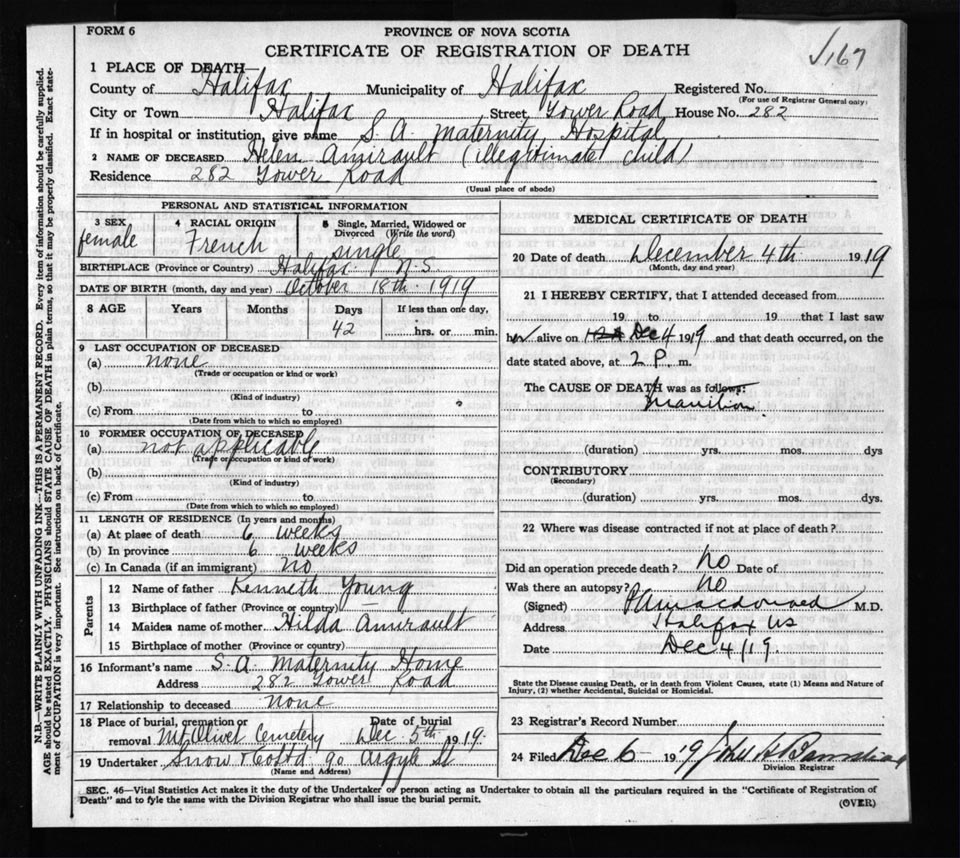 FORM 6
PROVINCE OF NOVA SCOTIA
CERTIFICATE OF REGISTRATION OF DEATH
1 PLACE OF DEATH—
County of Halifax Municipality of Halifax Registered No.
(For use of Registrar General only)
City or Town Halifax Street, Tower Road House No. 282
If in hospital or institution, give name S. A. Maternity Hospital
2 NAME OF DECEASED Helen Amirault (illegitimate child)
Residence 282 Tower Road
(Usual place of abode)
PERSONAL AND STATISTICAL INFORMATION
3 SEX 4 RACIAL ORIGIN 5 Single, Married, Widowed or Divorced (Write the word)
female French single
BIRTHPLACE (Province or Country) Halifax N.S.
DATE OF BIRTH (month, day and year) October 18th 1919
8 AGE Years Months Days If less than one day,
42 hrs. or min.
9 LAST OCCUPATION OF DECEASED
(a) none
(Trade or occupation or kind of work)
(b)
(Kind of industry)
(c) From to
(Date from which to which so employed)
10 FORMER OCCUPATION OF DECEASED
(a) not applicable
(Trade or occupation or kind of work)
(b)
(Kind of industry)
(c) From to
(Date from which to which so employed)
11 LENGTH OF RESIDENCE (In years and months)
(a) At place of death 6 weeks
(b) In province 6 weeks
(c) In Canada (if an immigrant) no
Parents
12 Name of father Kenneth Young
13 Birthplace of father (Province or country) —
14 Maiden name of mother Hilda Amirault
15 Birthplace of mother (Province or country)
16 Informant's name S. A. Maternity Home
Address 282 Tower Road
17 Relationship to deceased none
18 Place of burial, cremation or removal Mt Olivet Cemetery Date of burial Dec. 5th 1919.
19 Undertaker Snow & Co Ltd. 90 Argyle St
(Name and Address)
MEDICAL CERTIFICATE OF DEATH
20 Date of death December 4th 1919
(Month, day and year)
21 I HEREBY CERTIFY, that I attended deceased from
19 to 19 that I last saw
her alive on Dec 4 1919 and that death occurred, on the
date stated above, at 2 P. m.
The CAUSE OF DEATH was as follows:
Inanition
(duration) yrs. mos. dys
CONTRIBUTORY
(Secondary)
(duration) yrs. mos. dys.
22 Where was disease contracted if not at place of death?
Did an operation precede death? no Date of
Was there an autopsy? no
(Signed) M.D.
Address Halifax NS
Date Dec 4/19.
State the Disease causing Death, or in death from Violent Causes, state (1) Means and Nature of
Injury, (2) whether Accidental, Suicidal or Homicidal.
23 Registrar's Record Number
24 Filed Dec 6 1919 John
Division Registrar
SEC. 46—Vital Statistics Act makes it the duty of the Undertaker or person acting as Undertaker to obtain all the particulars required in the "Certificate of Registration of
Death" and to fyle the same with the Division Registrar who shall issue the burial permit.
(OVER)
N.B.—WRITE PLAINLY WITH UNFADING INK—THIS IS A PERMANENT RECORD. Every item of information should be carefully supplied.
AGE should be stated EXACTLY. PHYSICIANS should STATE CAUSE OF DEATH in plain terms, so that it may be properly classified. Exact state-
ment of OCCUPATION is very important. See instructions on back of Certificate.